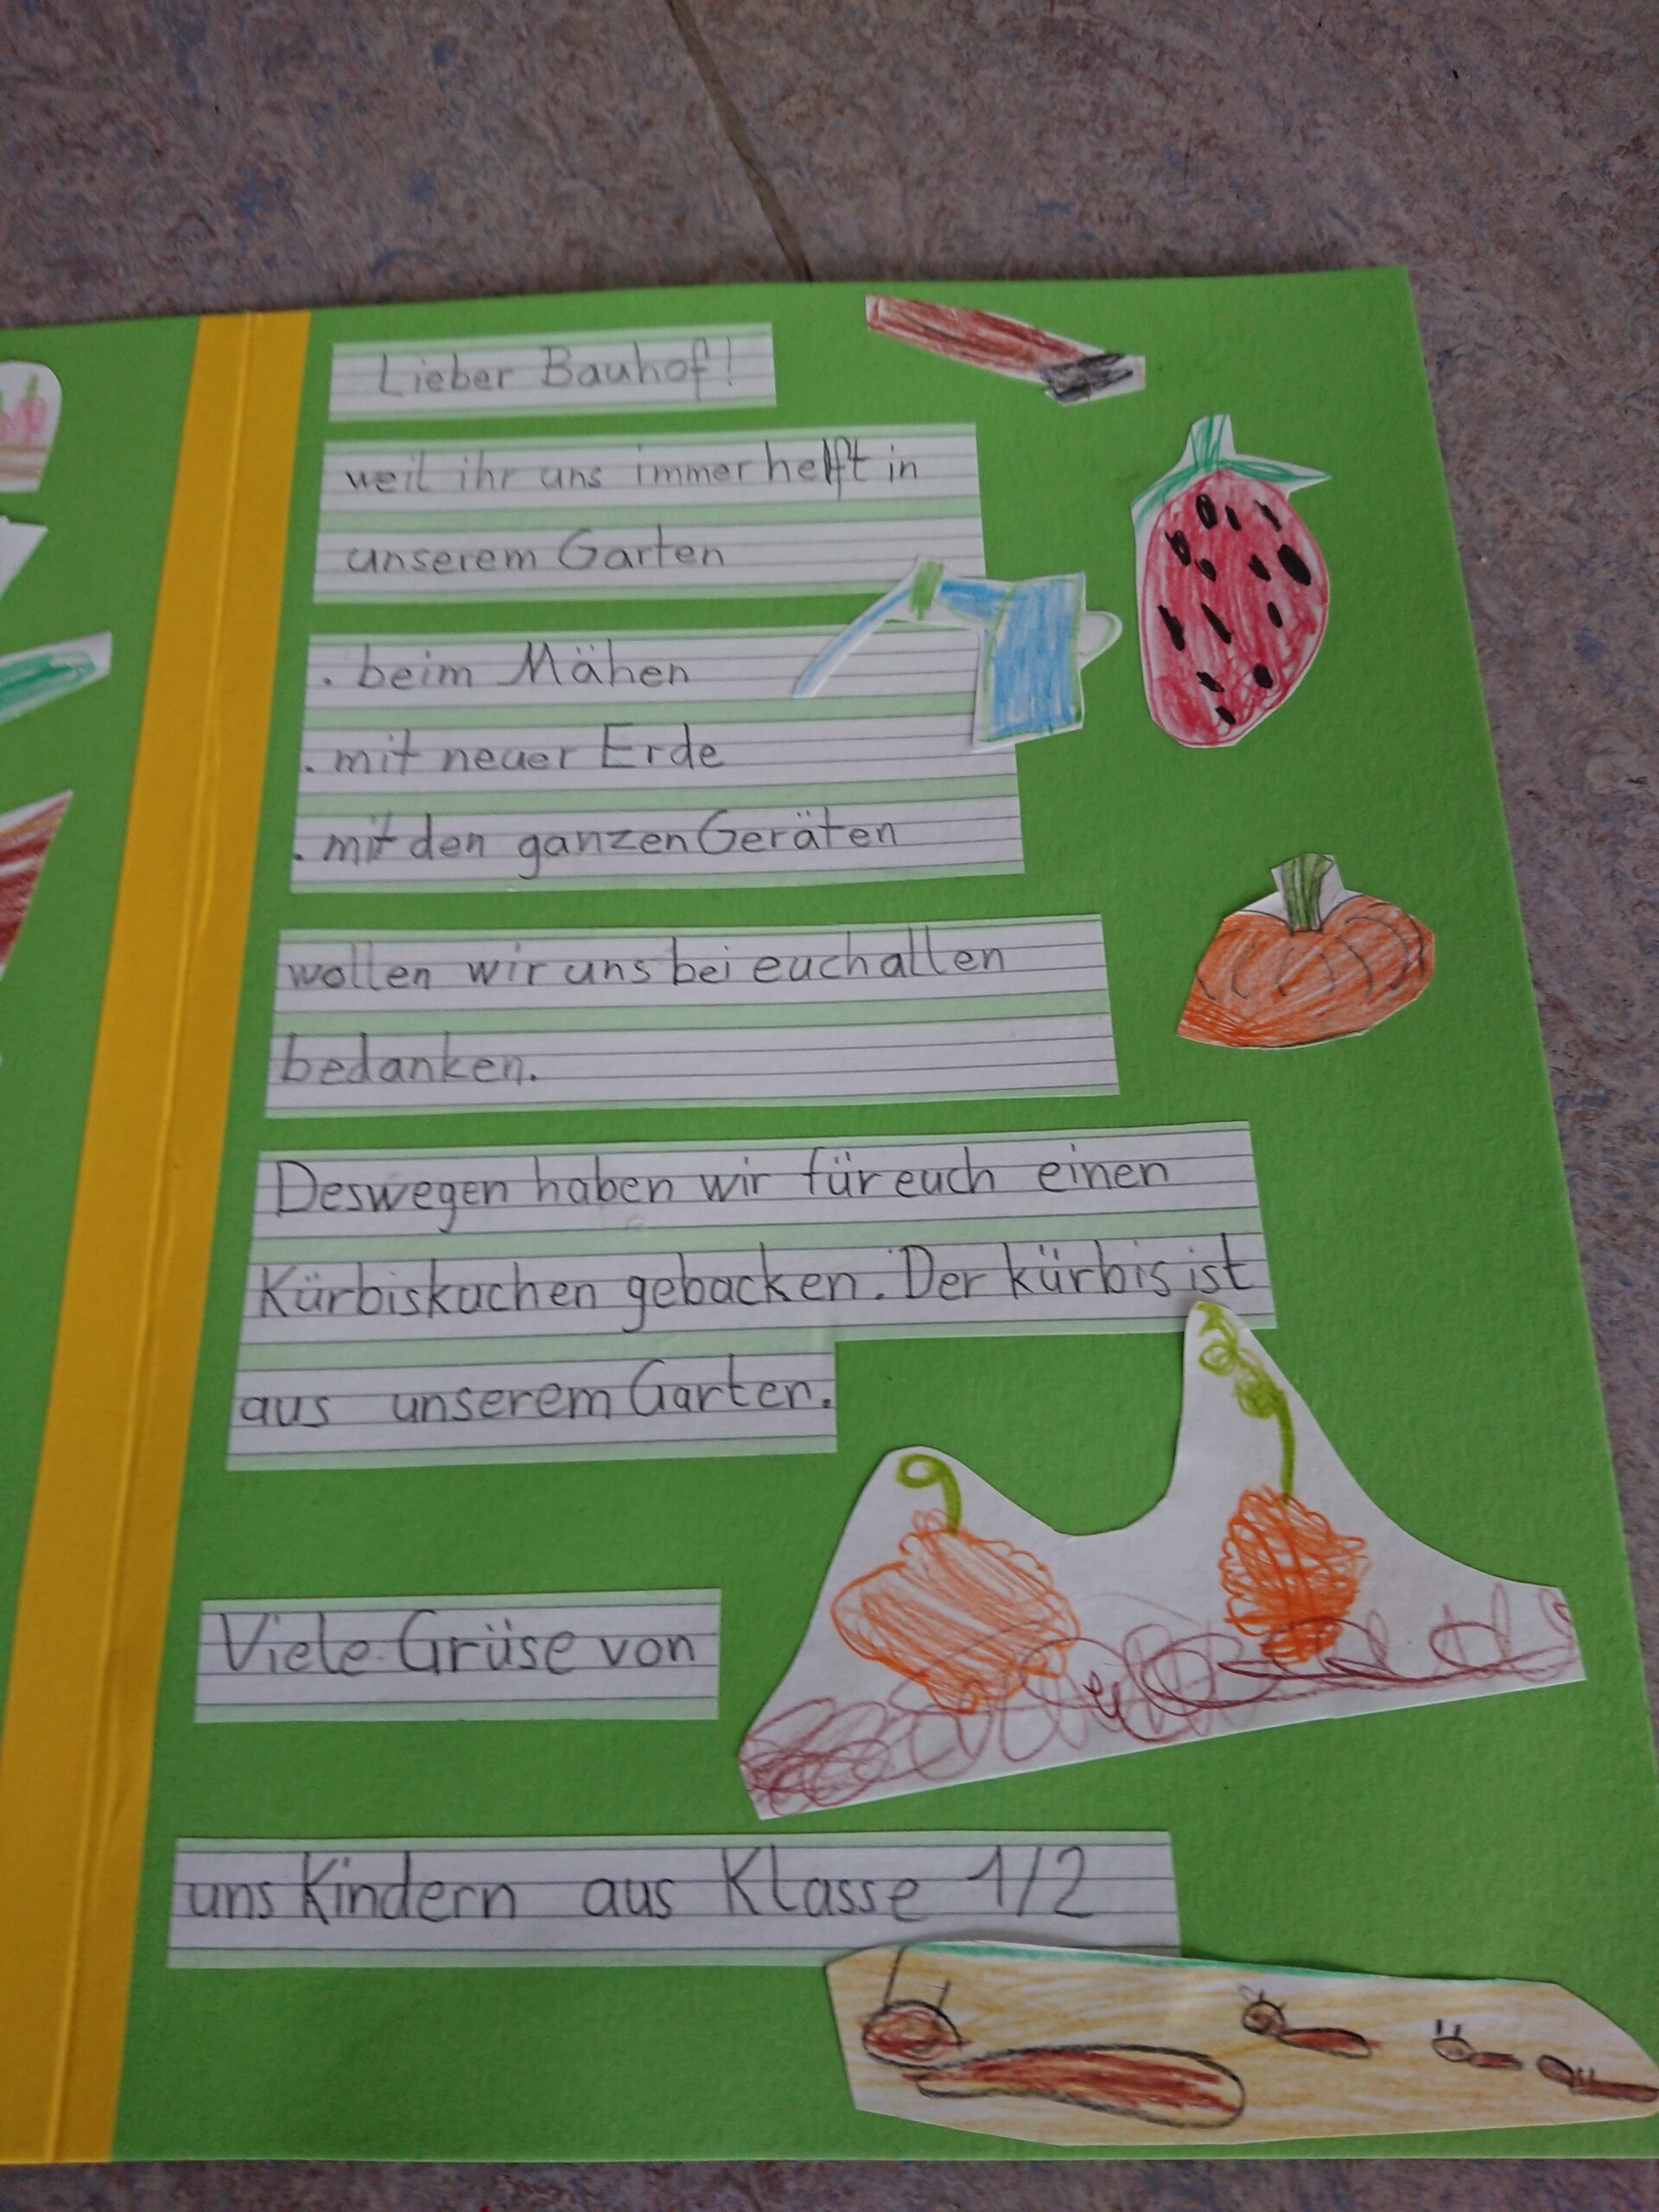 Lieber Bauhof!
weil ihr uns immer helft in
unserem Garten
. beim Mähen
. mit neuer Erde
. mit den ganzen Geräten
wollen wir uns bei euch allen
bedanken.
Deswegen haben wir für euch einen
Kürbiskuchen gebacken. Der kürbis ist
aus unserem Garten.
Viele Grüse von
uns Kindern aus Klasse 1/2